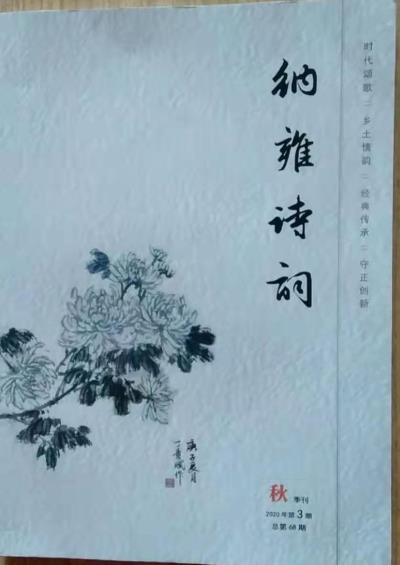 纳雍诗词
时代颂歌 :: 乡土情韵 :: 经典传承 :: 守正创新
庚子
作
秋 季刊
2020年第3期
总第68期